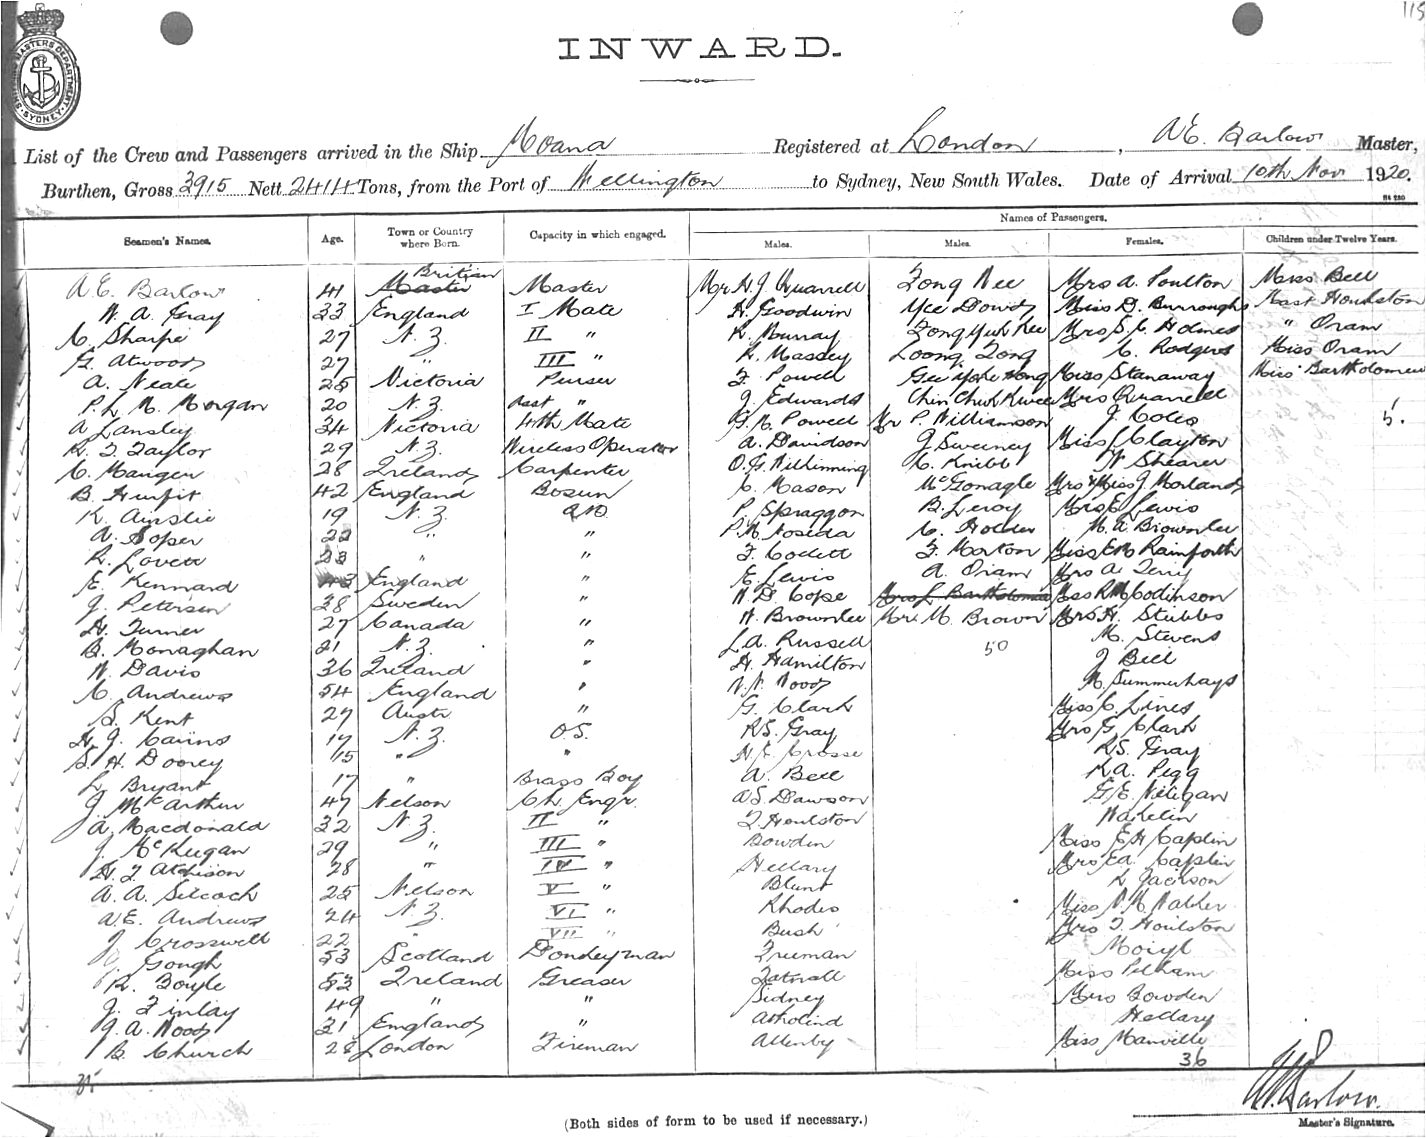 115
SHIPPING MASTERS DEPARTMENT SYDNEY
INWARD.
List of the Crew and Passengers arrived in the Ship Moana Registered at London, A E. Barlow Master,
Burthen, Gross 3915 Nett 2414 Tons, from the Port of Wellington to Sydney, New South Wales. Date of Arrival 10th Nov 1920.
Names of Passengers.
Seamen's Names. Age. Town or Country where Born. Capacity in which engaged. Males. Males. Females. Children under Twelve Years.
A. E. Barlow 41 Master Britian Master Mr H. J Quarrell Zong Nee Mrs A. Poulton Miss Bell
W. A. Gray 33 England I Mate H. Goodwin Yee Dowd Miss D. Burroughs Mast Houlston
C. Sharpe 27 N. Z. II " K. Murray Zong Yuk Kee Mrs S. C Holmes " Oram
G. Atwood 27 " III " K. Massey Loong Zong C. Rodgers Miss Oram
A. Neale 25 Victoria Purser F. Powell Gee Miss Stanaway Miss Bartholomew
P. L. M. Morgan 20 N. Z. Asst " J. Edwards Chin Chuk Kwee Mrs Quarrell
A Lansley 34 Victoria 4th Mate G. M. Powell Mr P. Williamson J Coles 5.
K. F. Taylor 29 N. Z. Wireless Operator A. Davidson J Sweeney Miss J Clayton
C. Manger 28 Ireland Carpenter O. G. Willinning C. Knibb W Shearer
B. Hurfit 42 England Bosun C. Mason McGonagle Mrs & Miss J. Morland
K. Ainslie 19 N. Z. A.B. P. Spraggon B. Leroy Mrs E Lewis
A. Soper 22 " " P. M. Noseda C. Holder M. A Brownlee
K. Lovett 23 " " F. Collett F. Morton Miss E M Rainforth
E. Kennard 43 England " E. Lewis A. Oram Mrs A Terry
J. Petersen 38 Sweden " W. D. Cope Mrs L Bartholomew Miss R M Codinson
H. Turner 27 Canada " W. Brownlee Mr M. Brown Mrs H. Stubbs
B. Monaghan 21 N. Z. " L. A. Russell 50 M. Stevens
W. Davis 36 Ireland " H. Hamilton J Bell
C. Andrews 54 England " W. Wood M. Summerhays
S. Kent 27 Austr " G. Clark Miss C. Lines
H. J. Cairns 17 N. Z. O.S. R. S. Gray Mrs G Clark
S. H. Doorey 15 " " H. E Crosse R S. Gray
L. Bryant 17 " Brass Boy A. Bell K A. Pegg
J McArthur 47 Nelson Ch. Engr. A S. Dawson G. E. Milligan
A. Macdonald 32 N. Z. II " F. Houlston Wakelin
J. McKeegan 29 " III " Bowden Miss E H Caplin
H. F Atchison 28 " IV " Hellary Mrs E A. Caplin
A. A. Silcock 25 Nelson V " Blunt K Jackson
A E. Andrews 24 N. Z. VI " Rhodes Miss N. M. Walker
J Crosswell 22 VII " Bush Mrs F. Houlston
Gough 53 Scotland Donkeyman Freeman
K. Boyle 53 Ireland Greaser Tatnall Miss Pelham
J. Finlay 49 " " Sidney Mrs Bowden
J. A. Wood 31 England " Hellary
B. Church 28 London Fireman Allenby Miss Manville
35 36
A E Barlow.
Master's Signature.
(Both sides of form to be used if necessary.)